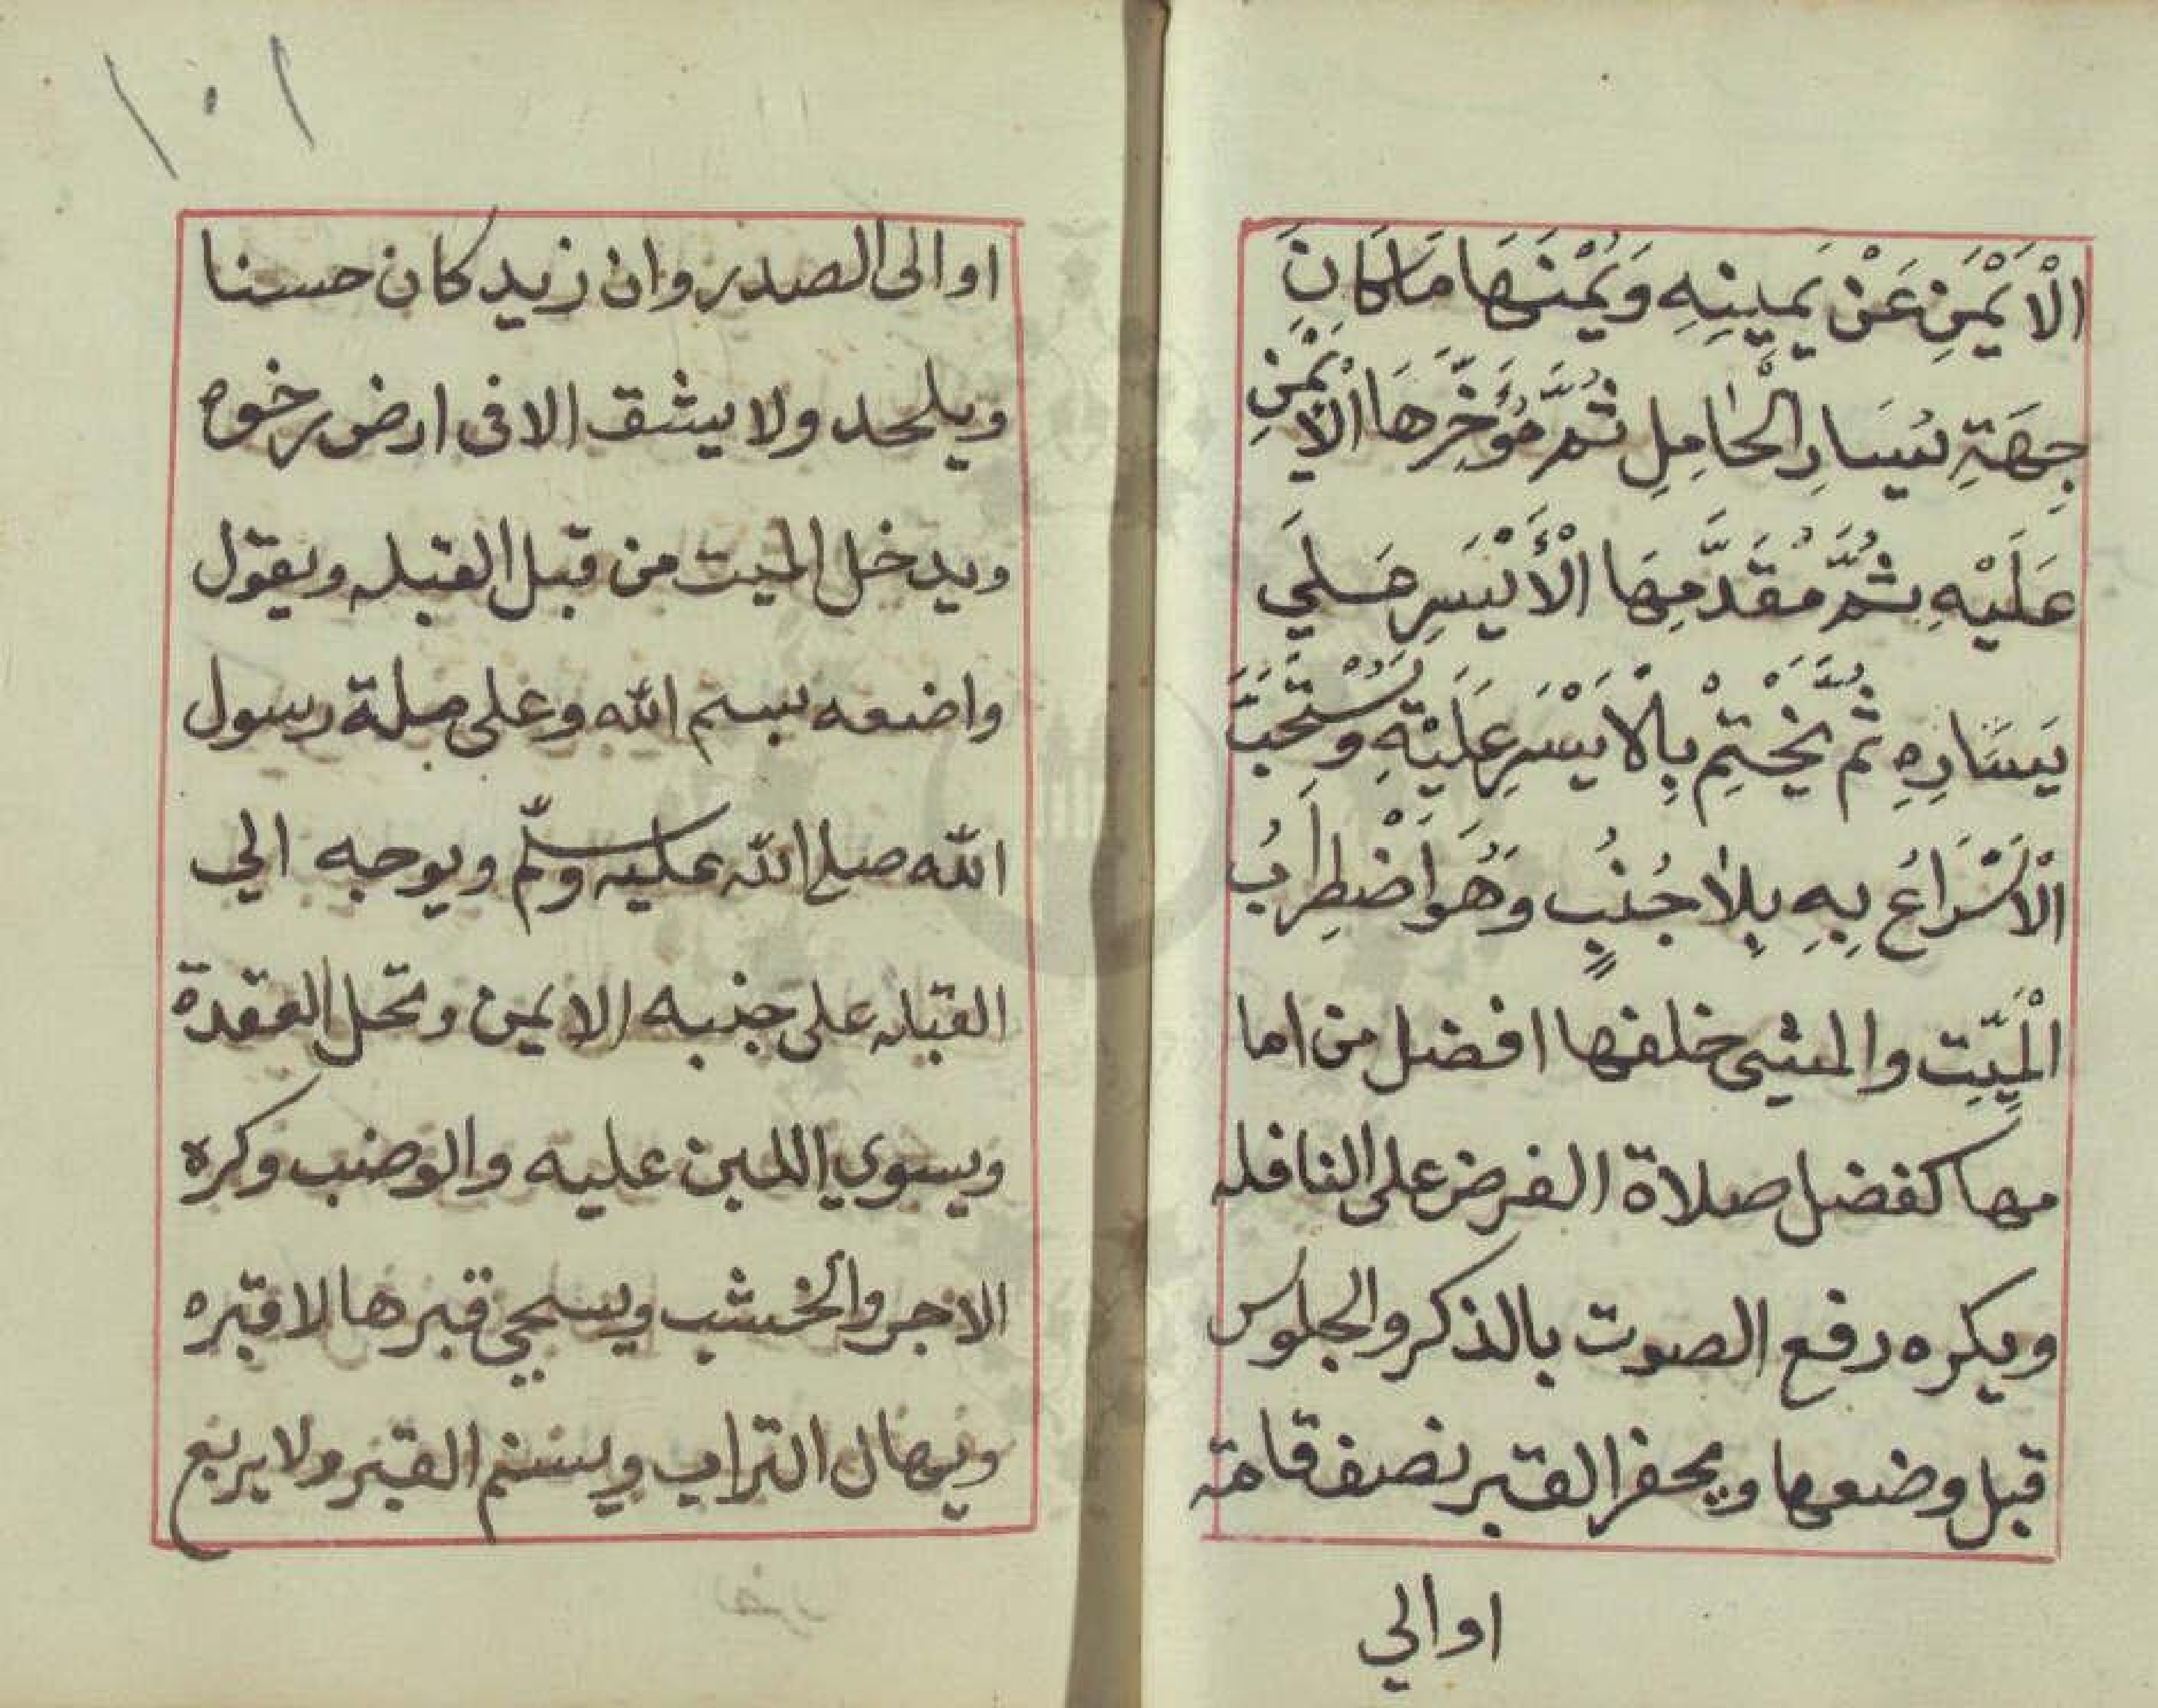 الْاَيْمَنِ عَنْ يَمِينِهِ وَيَمْنَهَا مَا كَانَ
جِهَةِ يَسَارِ الْحَامِلِ ثُمَّ مُؤَخِّرَهَا الْاَيْمَنِ
عَلَيْهِ ثُمَّ مُقَدَّمِهَا الْأَيْسَرِ عَلَي
يَسَارِهِ ثُمَّ يَخْتِمُ بِالْاَيْسَرِ عَلَيْهِ وَيُسْتَحَبُّ
الْاَسْرَاعُ بِهِ بِلَا جُنُبٍ وَهُوَ اَضْطِرَابُ
الْمَيِّتِ والمشى خلفها افضل من اما
مها كفضل صلاة الفرض على النافله
ويكره رفع الصوت بالذكر والجلوس
قبل وضعها ويحفر القبر نصف قامة
او الي
١٠١
او الى الصدر وان زيد كان حسنا
ويلحد ولا يشق الا فى ارض رخوه
ويدخل الميت من قبل القبله ويقول
واضعه بسم الله وعلى ملة رسول
الله صلى الله عليه وسلّم ويوجه الي
القبله على جنبه الايمن وتحل العقدة
ويسوي اللبن عليه والوضب وكره
الاجر والخشب ويسجي قبرها لا قبره
ويهال التراب ويسنم القبر ولا يربع